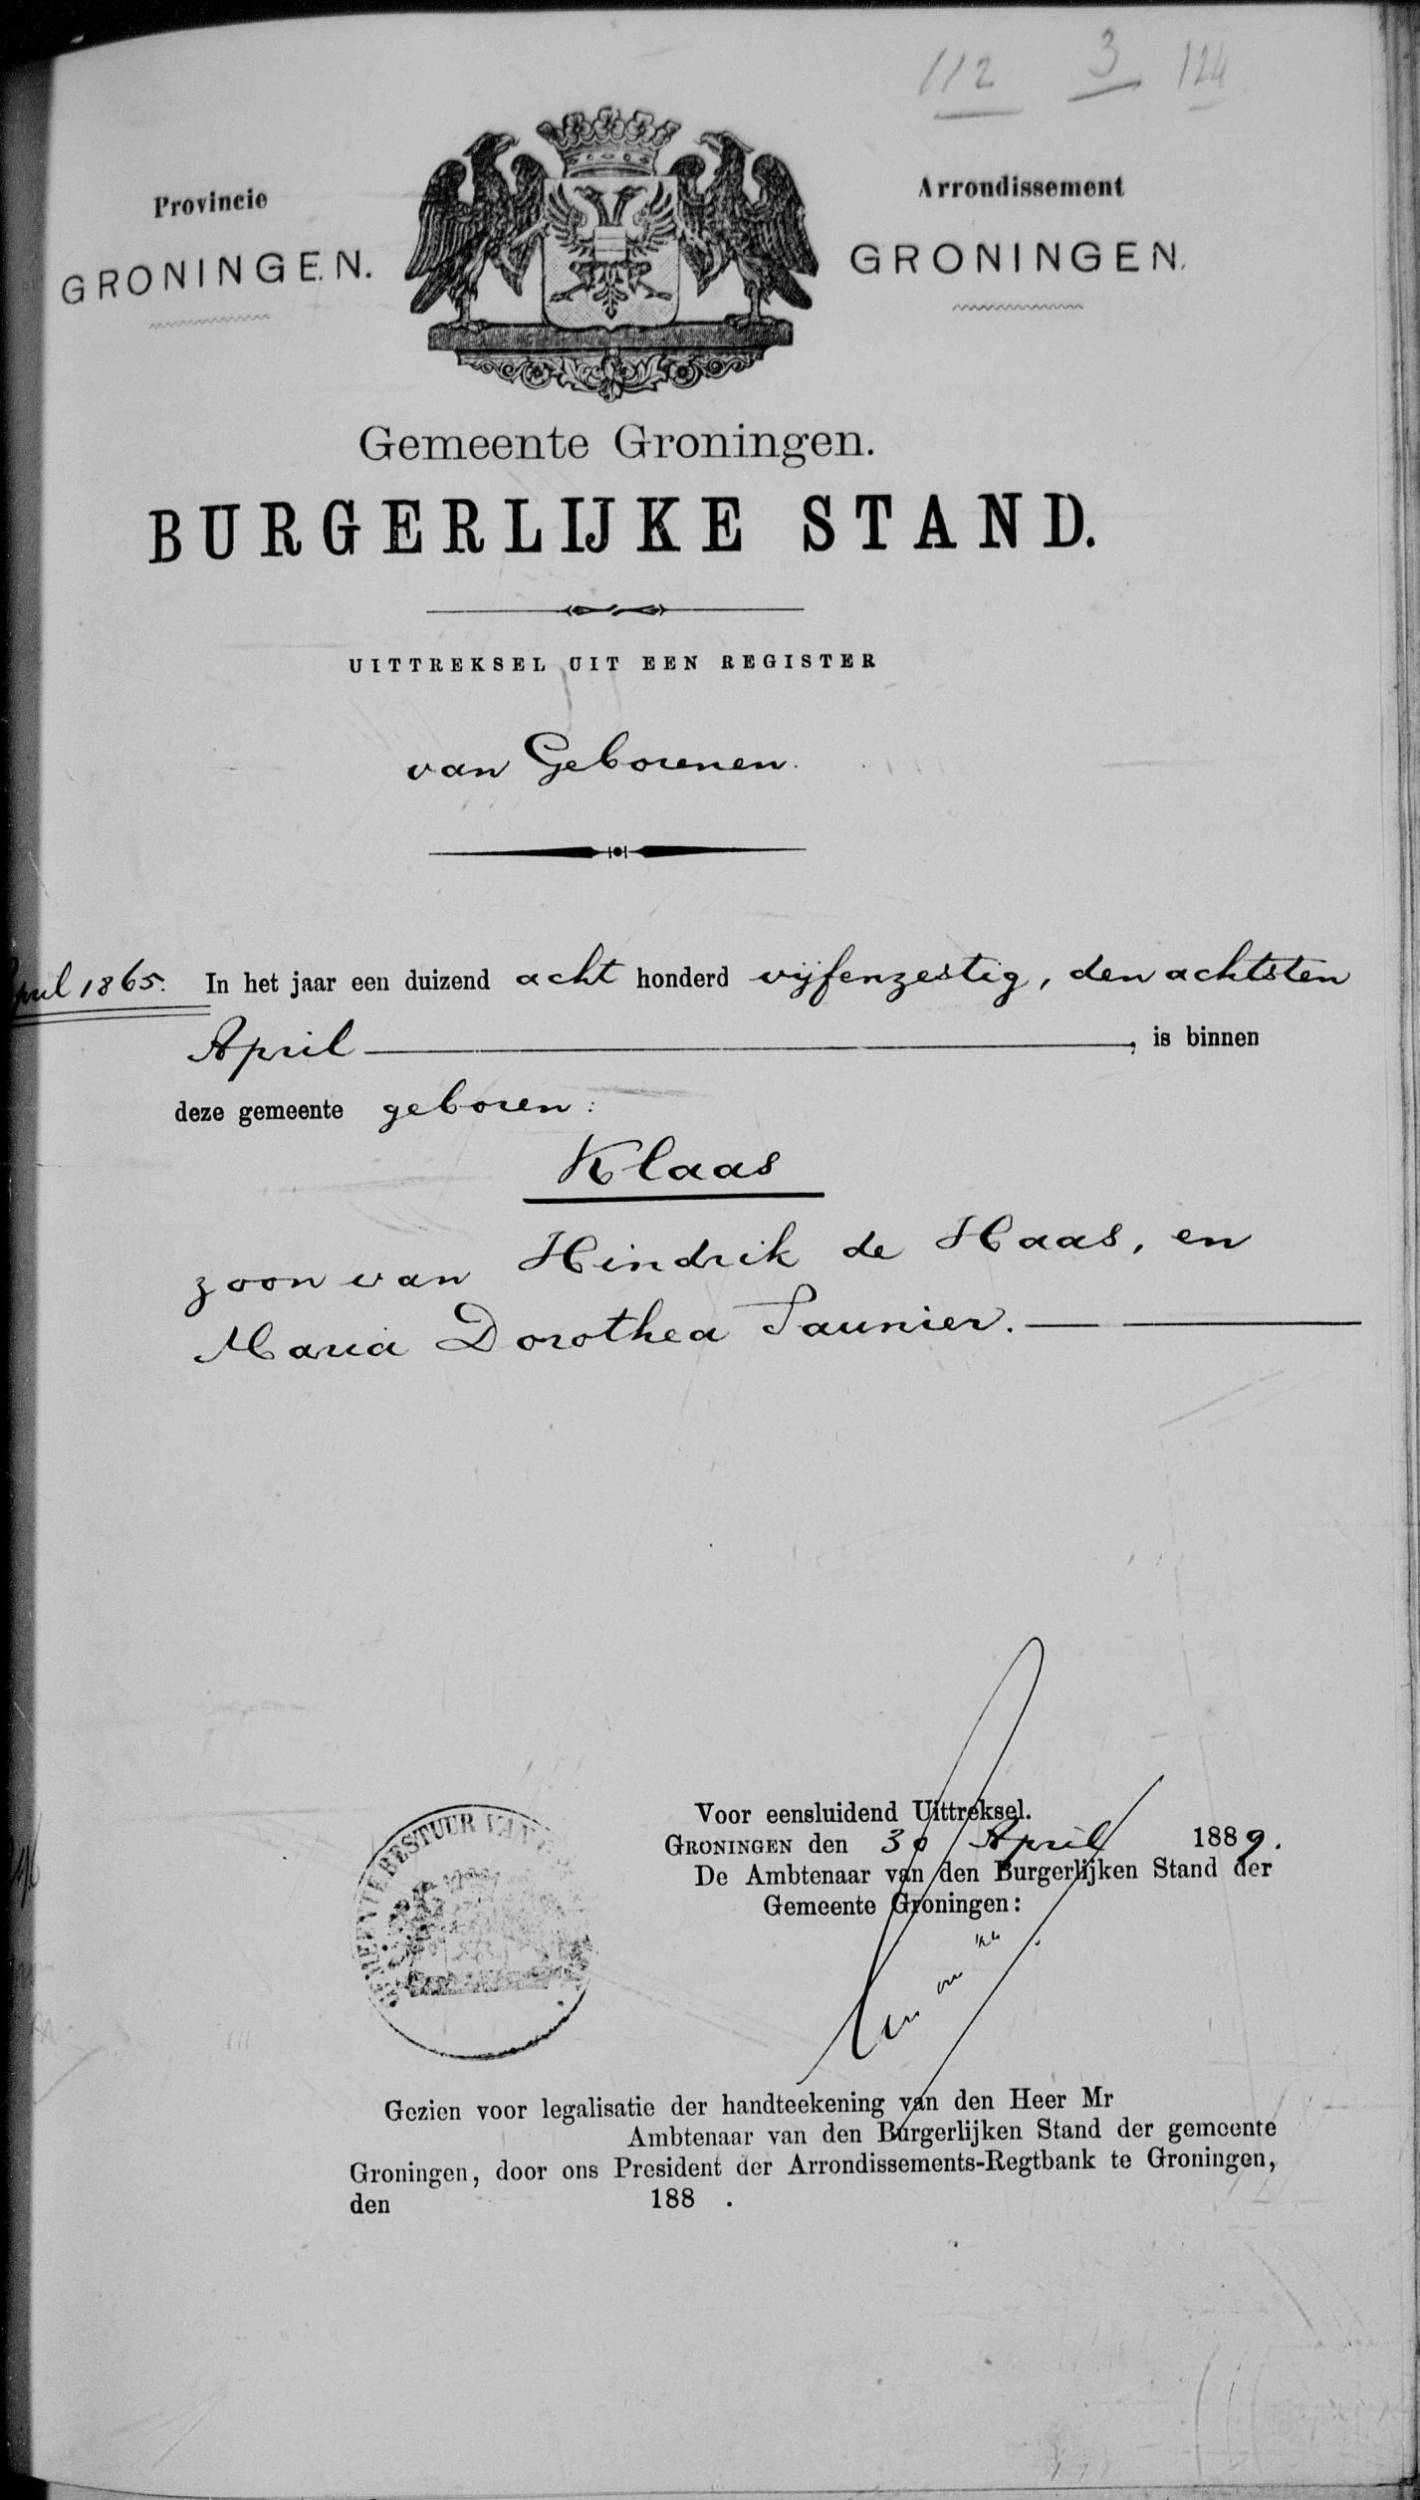 112 3 124
Provincie
GRONINGEN.
Arrondissement
GRONINGEN.
Gemeente Groningen.
BURGERLIJKE STAND.
UITTREKSEL UIT EEN REGISTER
van Geborenen.
April 1865. In het jaar een duizend acht honderd vijfenzestig, den achtsten
April , is binnen
deze gemeente geboren:
Klaas
zoon van Hindrik de Haas, en
Maria Dorothea Saunier.
Voor eensluidend Uittreksel.
GRONINGEN den 30 April 1889.
De Ambtenaar van den Burgerlijken Stand der
Gemeente Groningen:
GEMEENTEBESTUUR VAN
Gezien voor legalisatie der handteekening van den Heer Mr
Ambtenaar van den Burgerlijken Stand der gemeente
Groningen, door ons President der Arrondissements-Regtbank te Groningen,
den 188 .